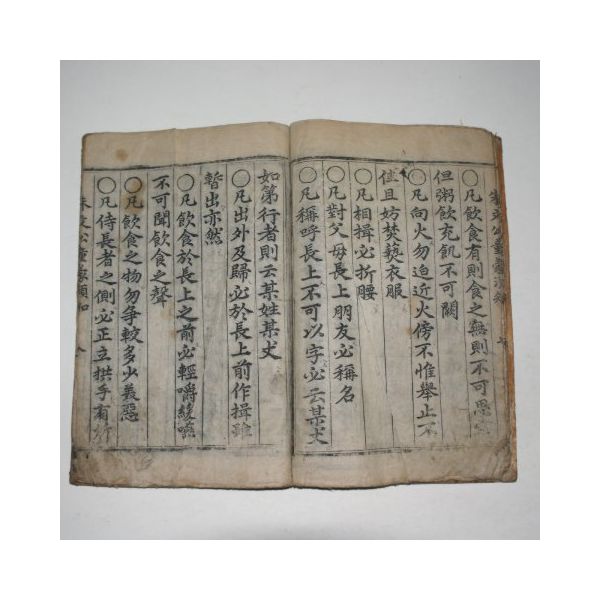 ○凡飮食有則食之無則不可思索
但粥飮充飢不可闕
○凡向火勿迫近火傍不惟擧止不
佳且妨焚爇衣服
○凡相揖必折腰
○凡對父母長上朋友必稱名
○凡稱呼長上不可以字必云某丈
如第行者則云某姓某丈
○凡出外及歸必於長上前作揖雖
暫出亦然
○凡飮食於長上之前必輕嚼緩嚥
不可聞飮食之聲
○凡飮食之物勿爭較多少羙惡
○凡侍長者之側必正立拱手有所
朱文公童蒙須知 八